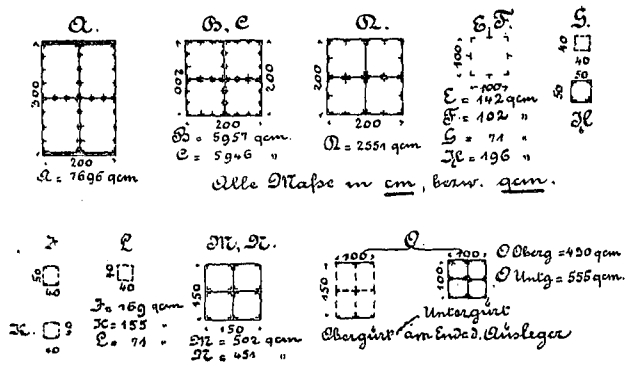 A.
300
200
A = 7696 qcm
B, C
200
200
200
B = 5957 qcm.
C = 5946 "
200
200
= 2551 qcm
E, F.
100
100
E = 142 qcm
F = 102 "
G = 71 "
H = 196 "
G.
40
40
50
50
H
Alle Maße in cm, bezw. qcm.
J
50
40
K.
40
L
40
J = 169 qcm
K = 155 "
L = 71 "
M, N.
150
150
M = 502 qcm
N = 451 "
O.
100
150
100
100
O Oberg = 490 qcm
O Untg = 555 qcm.
Untergurt
Obergurt am Ende d. Ausleger